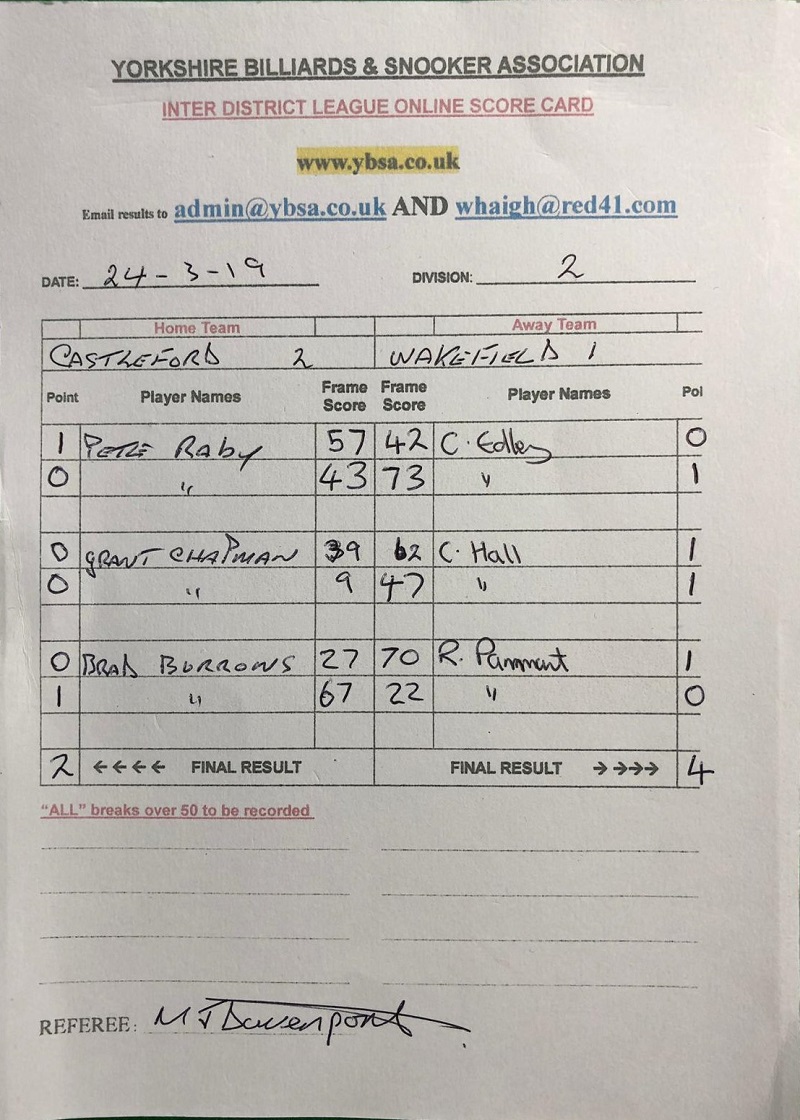 YORKSHIRE BILLIARDS & SNOOKER ASSOCIATION
INTER DISTRICT LEAGUE ONLINE SCORE CARD
www.ybsa.co.uk
Email results to admin@ybsa.co.uk AND whaigh@red41.com
DATE: 24-3-19 DIVISION: 2
Home Team Away Team
CASTLEFORD 2 WAKEFIELD 1
Point Player Names Frame Score Frame Score Player Names Poi
1 PETE RAby 57 42 C. Edley 0
0 " 43 73 " 1
0 GRANT CHAPMAN 39 62 C. Hall 1
0 " 9 47 " 1
0 BRAD BURROWS 27 70 R. Pammant 1
1 " 67 22 " 0
2 ←←←← FINAL RESULT FINAL RESULT →→→→ 4
"ALL" breaks over 50 to be recorded
REFEREE: M J Davenport